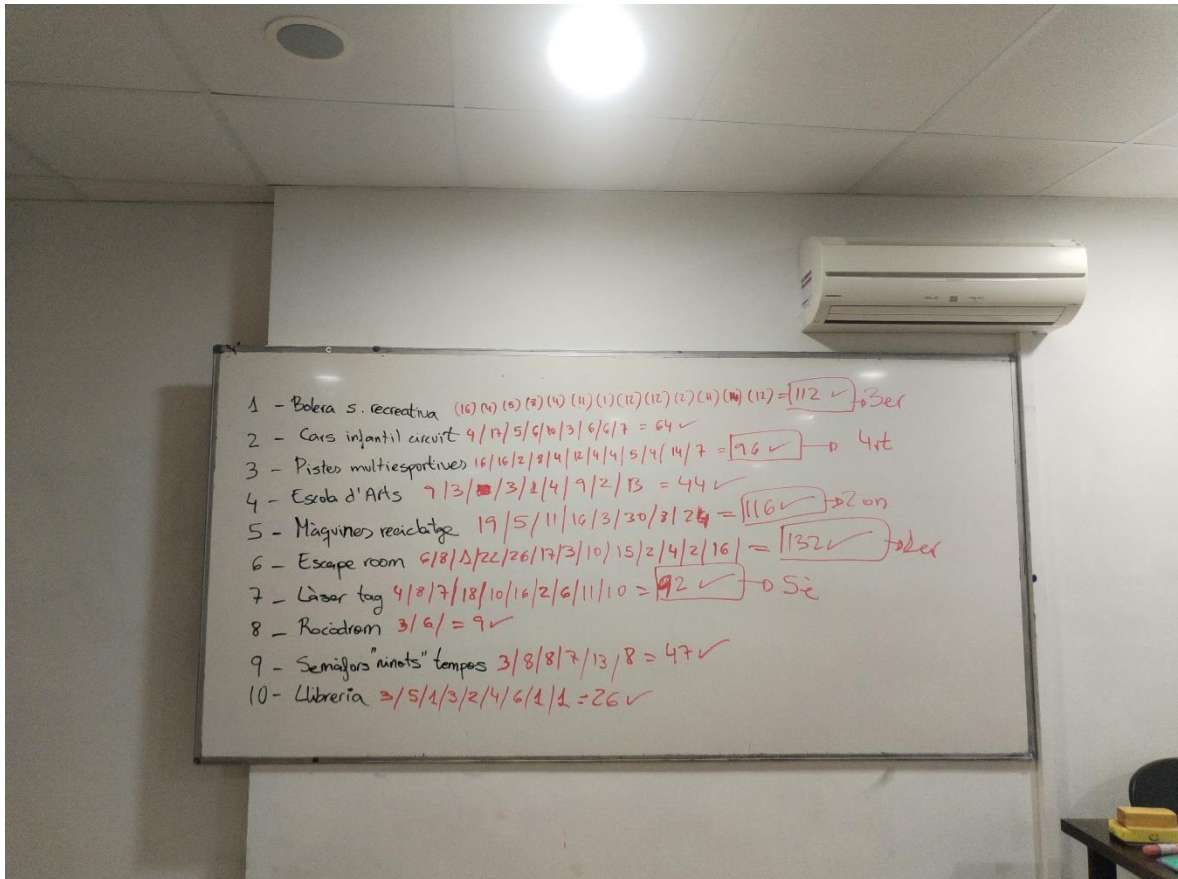 1 - Bolera s. recreativa (16)(4)(5)(3)(4)(11)(1)(12)(12)(2)(11) (12) = 112 ✓ → 3er
2 - Cars infantil circuit 4/17/5/6/10/3/6/6/7 = 64 ✓
3 - Pistes multiesportives 16/16/2/8/4/12/4/4/5/4/14/7 = 96 ✓ → 4rt
4 - Escola d'Arts 9/3/ /3/1/4/9/2/13 = 44 ✓
5 - Màquines reciclatge 19/5/11/16/3/30/8/24 = 116 ✓ → 2on
6 - Escape room 6/8/1/22/26/17/3/10/15/2/4/2/16/ = 132 ✓ → 1er
7 - Làser tag 4/8/7/18/10/16/2/6/11/10 = 92 ✓ → 5è
8 - Rocòdrom 3/6/ = 9 ✓
9 - Semàfors "ninots" tempos 3/8/8/7/13/8 = 47 ✓
10 - Llibreria 3/5/1/3/2/4/6/1/1 = 26 ✓